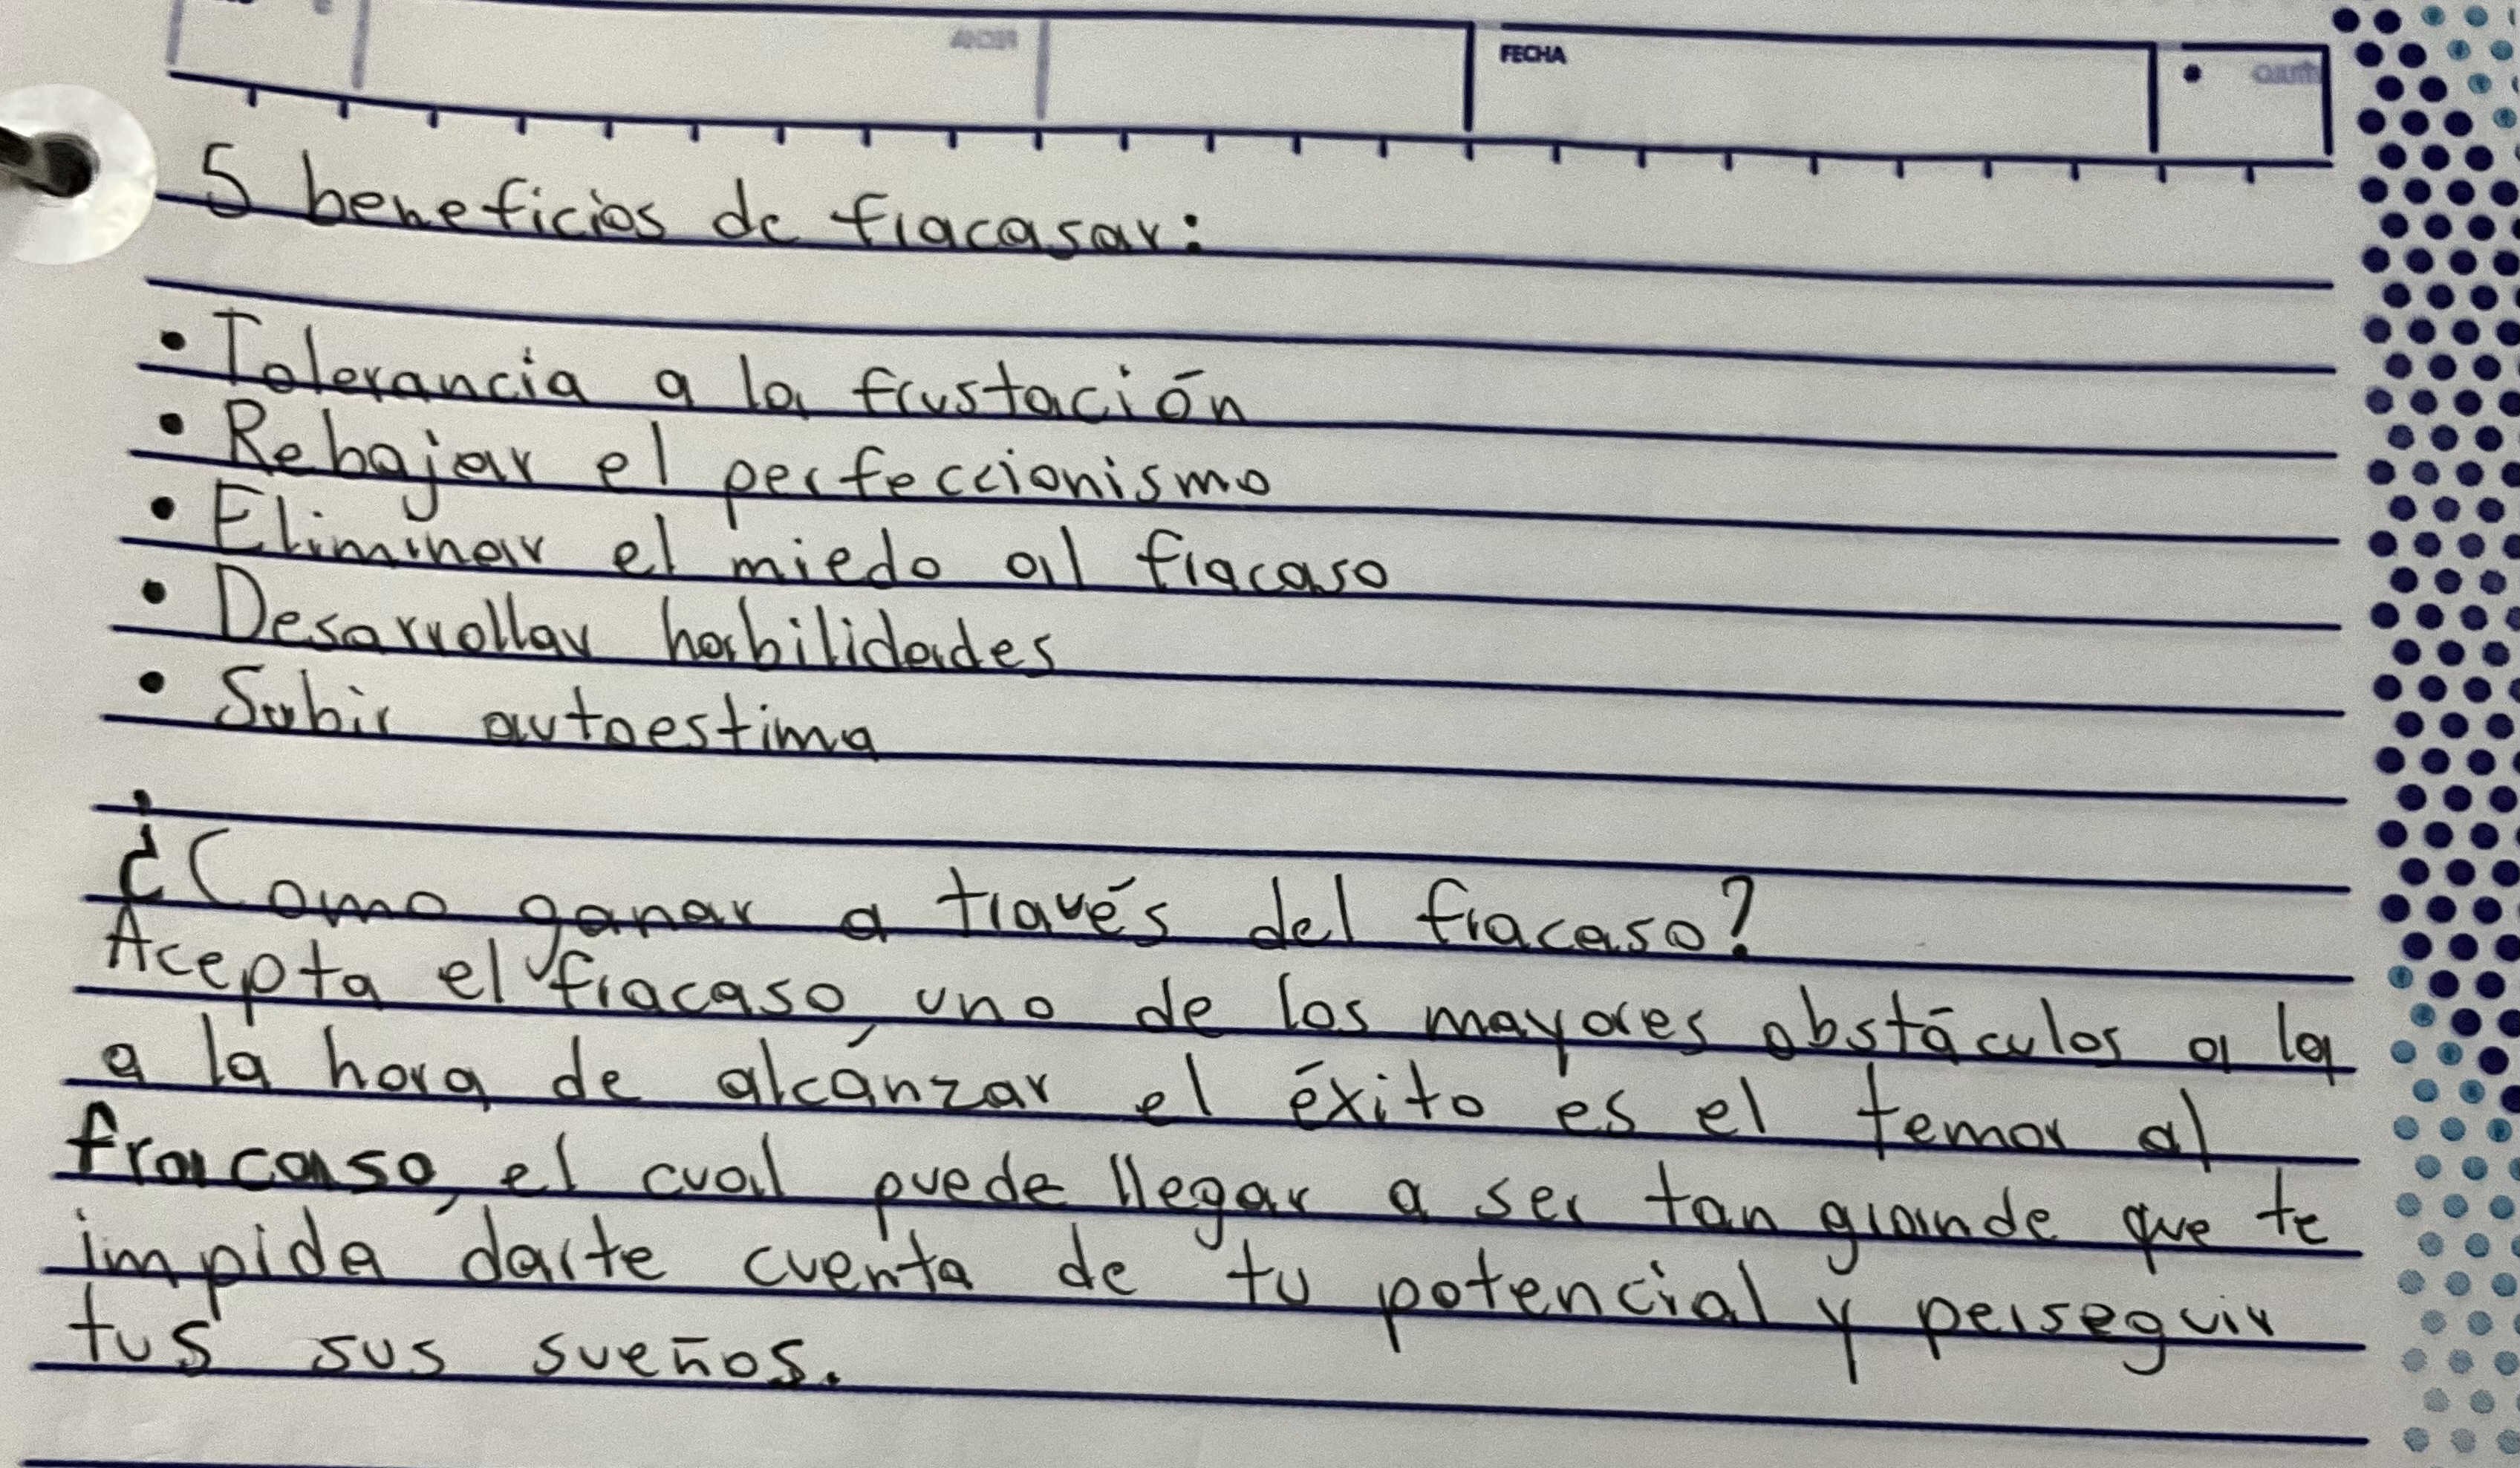 FECHA
5 beneficios de fracasar:
• Tolerancia a la frustación
• Rebajar el perfeccionismo
• Eliminar el miedo al fracaso
• Desarrollar habilidades
• Subir autoestima
¿Como ganar a través del fracaso?
Acepta el fracaso, uno de los mayores obstáculos a la
a la hora de alcanzar el éxito es el temor al
fracaso, el cual puede llegar a ser tan grande que te
impida darte cuenta de tu potencial y perseguir
tus sus sueños.